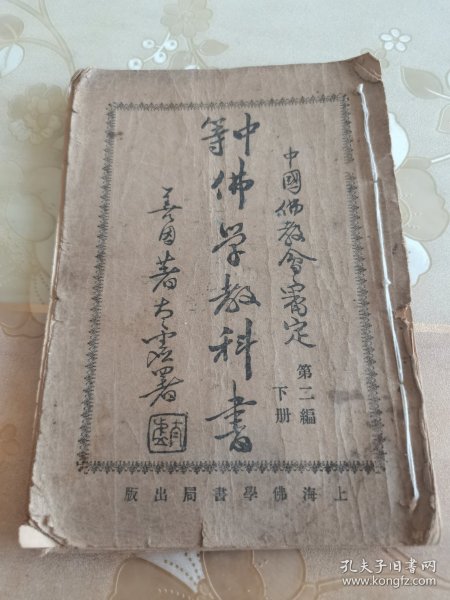 中國佛教會審定
第二編
下册
中等佛学教科書
善因著太虛署
太虛
上海佛學書局出版
孔夫子旧书网
www.kongfz.com